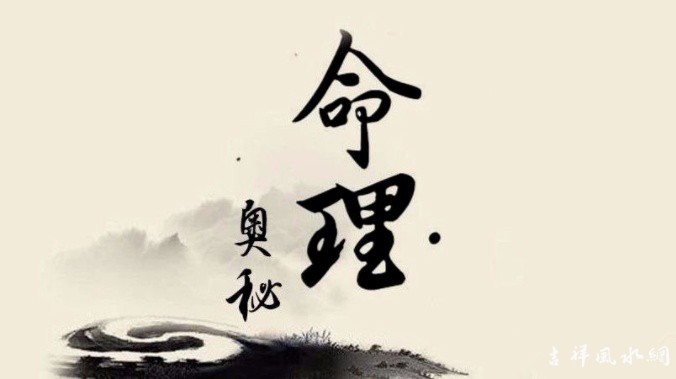 命理
奥秘
吉祥風水網